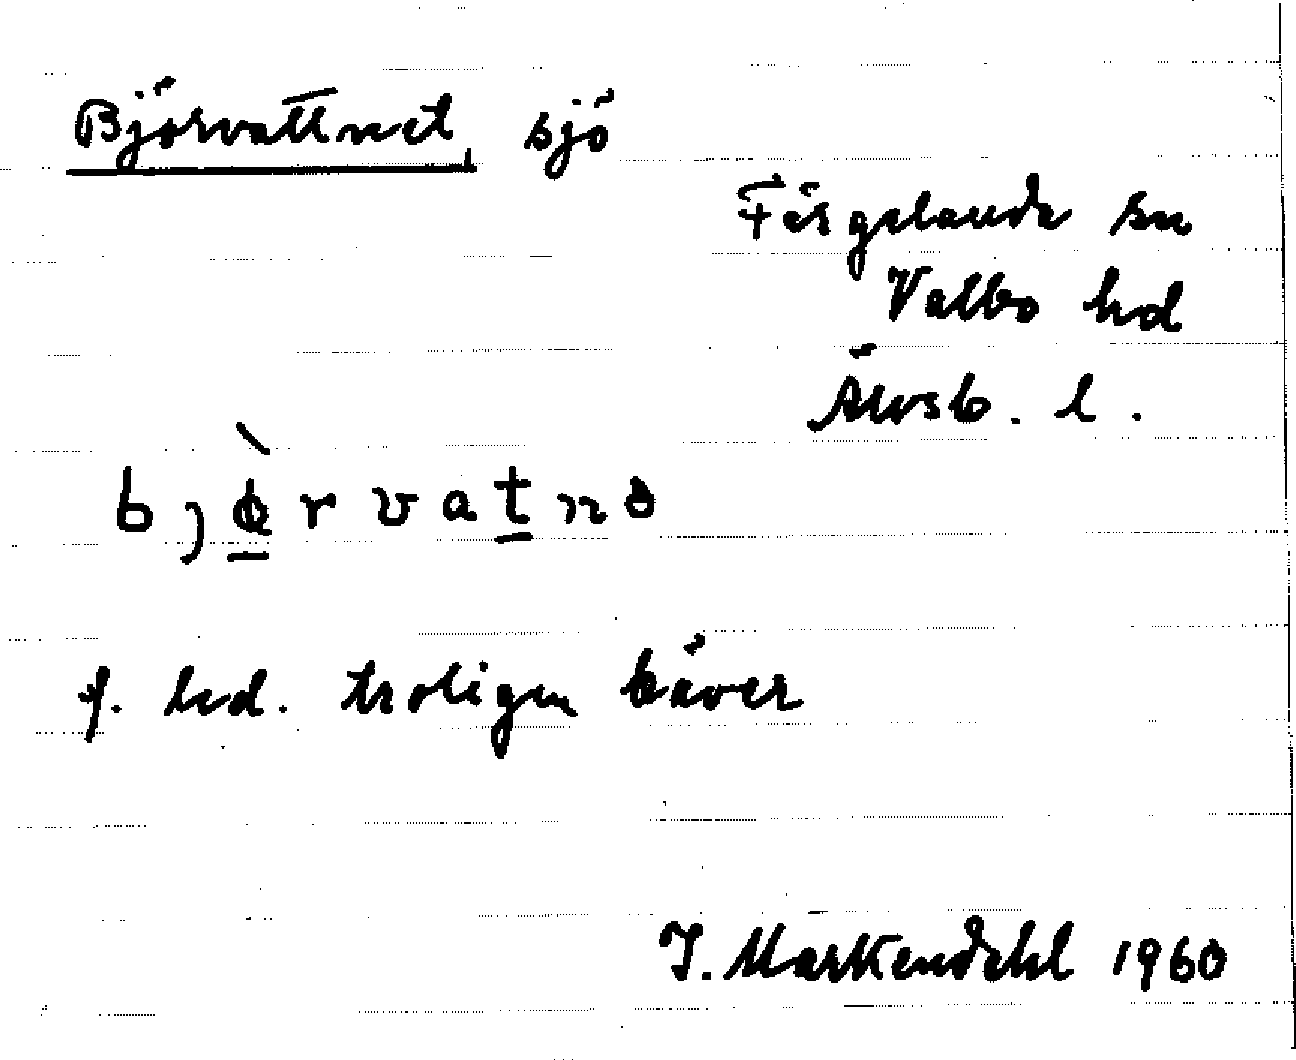 Björvattnet, sjö
Färgelanda sn
Valbo hd
Älvsb. l.
bjø̀rvatnə
f. led. troligen bäver
I. Markendahl 1960